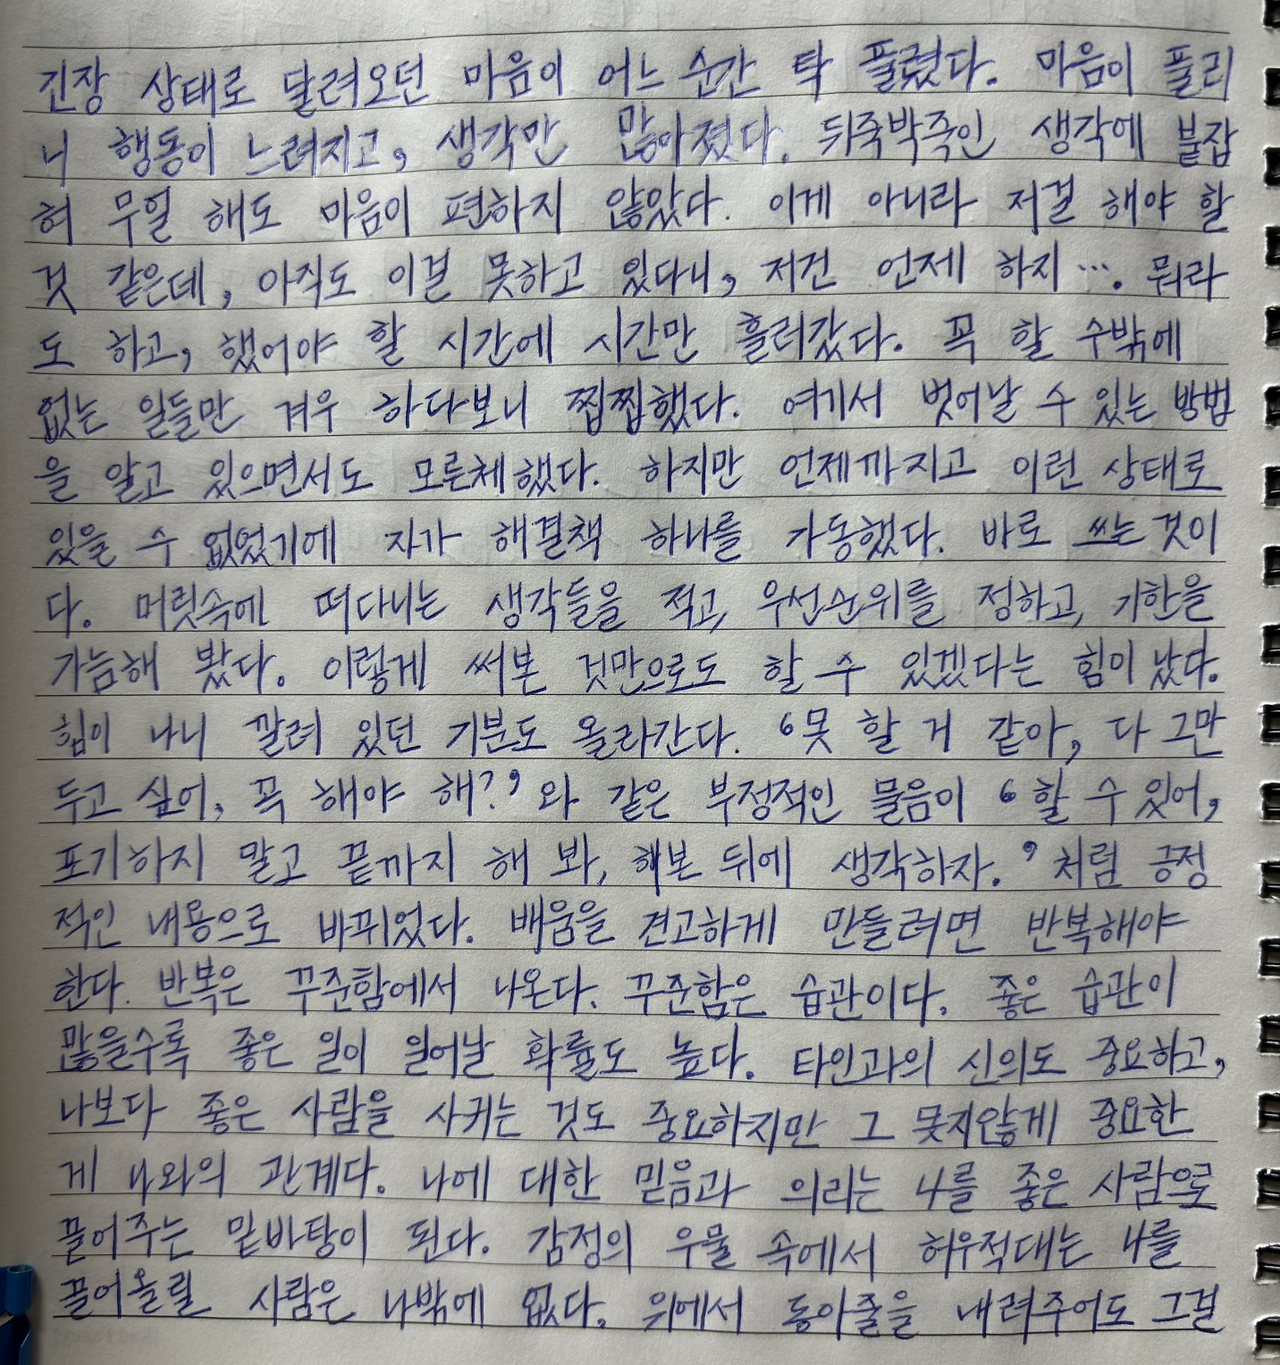 긴장 상태로 달려오던 마음이 어느 순간 탁 풀렸다. 마음이 풀리
니 행동이 느려지고, 생각만 많아졌다. 뒤죽박죽인 생각에 붙잡
혀 무얼 해도 마음이 편하지 않았다. 이게 아니라 저걸 해야 할
것 같은데, 아직도 이걸 못하고 있다니, 저건 언제 하지…. 뭐라
도 하고, 했어야 할 시간에 시간만 흘러갔다. 꼭 할 수밖에
없는 일들만 겨우 하다보니 찝찝했다. 여기서 벗어날 수 있는 방법
을 알고 있으면서도 모른체했다. 하지만 언제까지고 이런 상태로
있을 수 없었기에 자가 해결책 하나를 가동했다. 바로 쓰는 것이
다. 머릿속에 떠다니는 생각들을 적고, 우선순위를 정하고, 기한을
가늠해 봤다. 이렇게 써본 것만으로도 할 수 있겠다는 힘이 났다.
힘이 나니 깔려 있던 기분도 올라간다. ‘못 할 거 같아, 다 그만
두고 싶어, 꼭 해야 해?’와 같은 부정적인 물음이 ‘할 수 있어,
포기하지 말고 끝까지 해 봐, 해본 뒤에 생각하자.’처럼 긍정
적인 내용으로 바뀌었다. 배움을 견고하게 만들려면 반복해야
한다. 반복은 꾸준함에서 나온다. 꾸준함은 습관이다. 좋은 습관이
많을수록 좋은 일이 일어날 확률도 높다. 타인과의 신의도 중요하고,
나보다 좋은 사람을 사귀는 것도 중요하지만 그 못지않게 중요한
게 나와의 관계다. 나에 대한 믿음과 의리는 나를 좋은 사람으로
끌어주는 밑바탕이 된다. 감정의 우물 속에서 허우적대는 나를
끌어올릴 사람은 나밖에 없다. 위에서 동아줄을 내려주어도 그걸